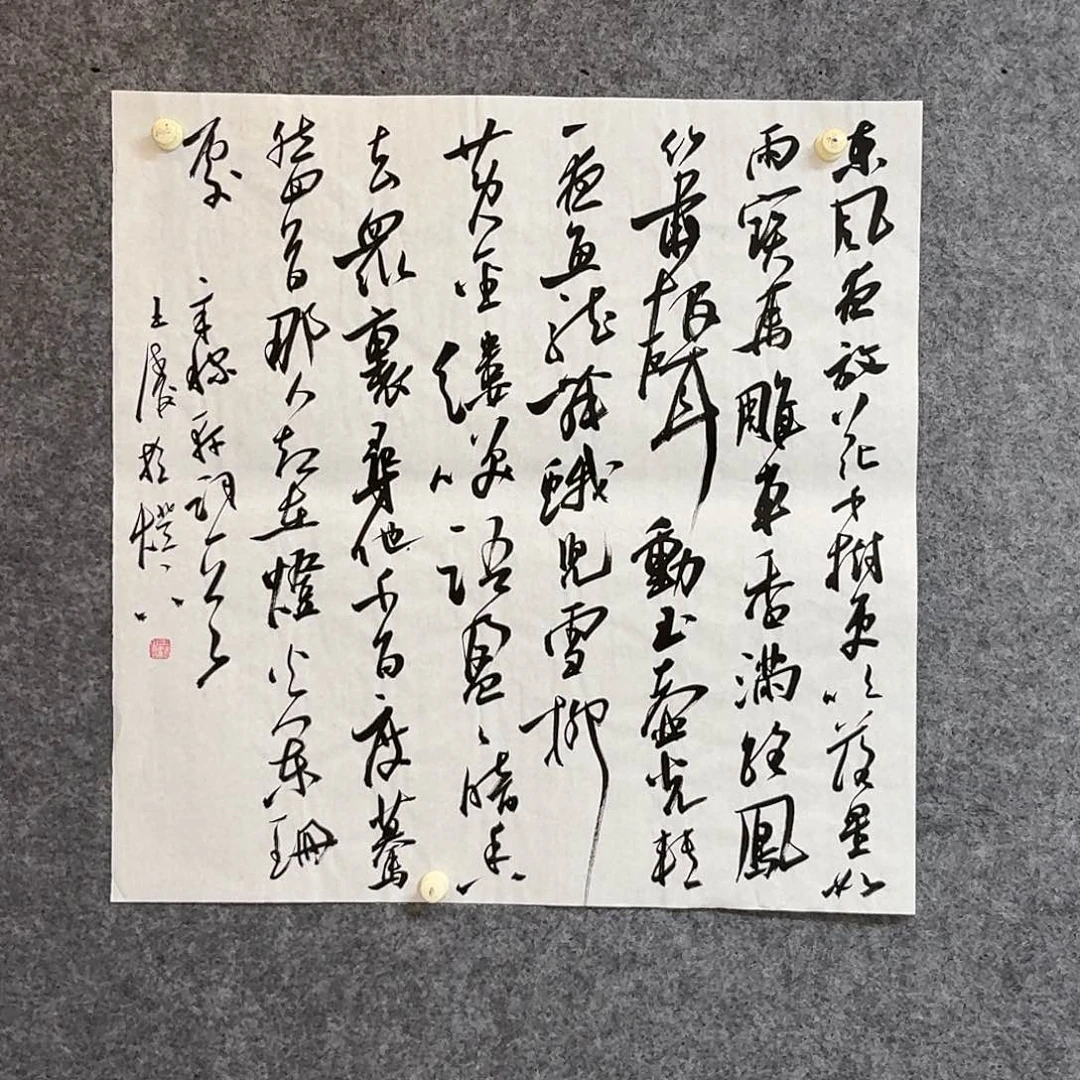 東風夜放花千樹更吹落星如
雨寶馬雕車香滿路鳳
簫聲動玉壺光轉
一夜魚龍舞蛾兒雪柳
黃金縷笑語盈〻暗香
去衆裏尋他千百度驀
然回首那人却在燈火闌珊
處
辛稼軒詞一首
王